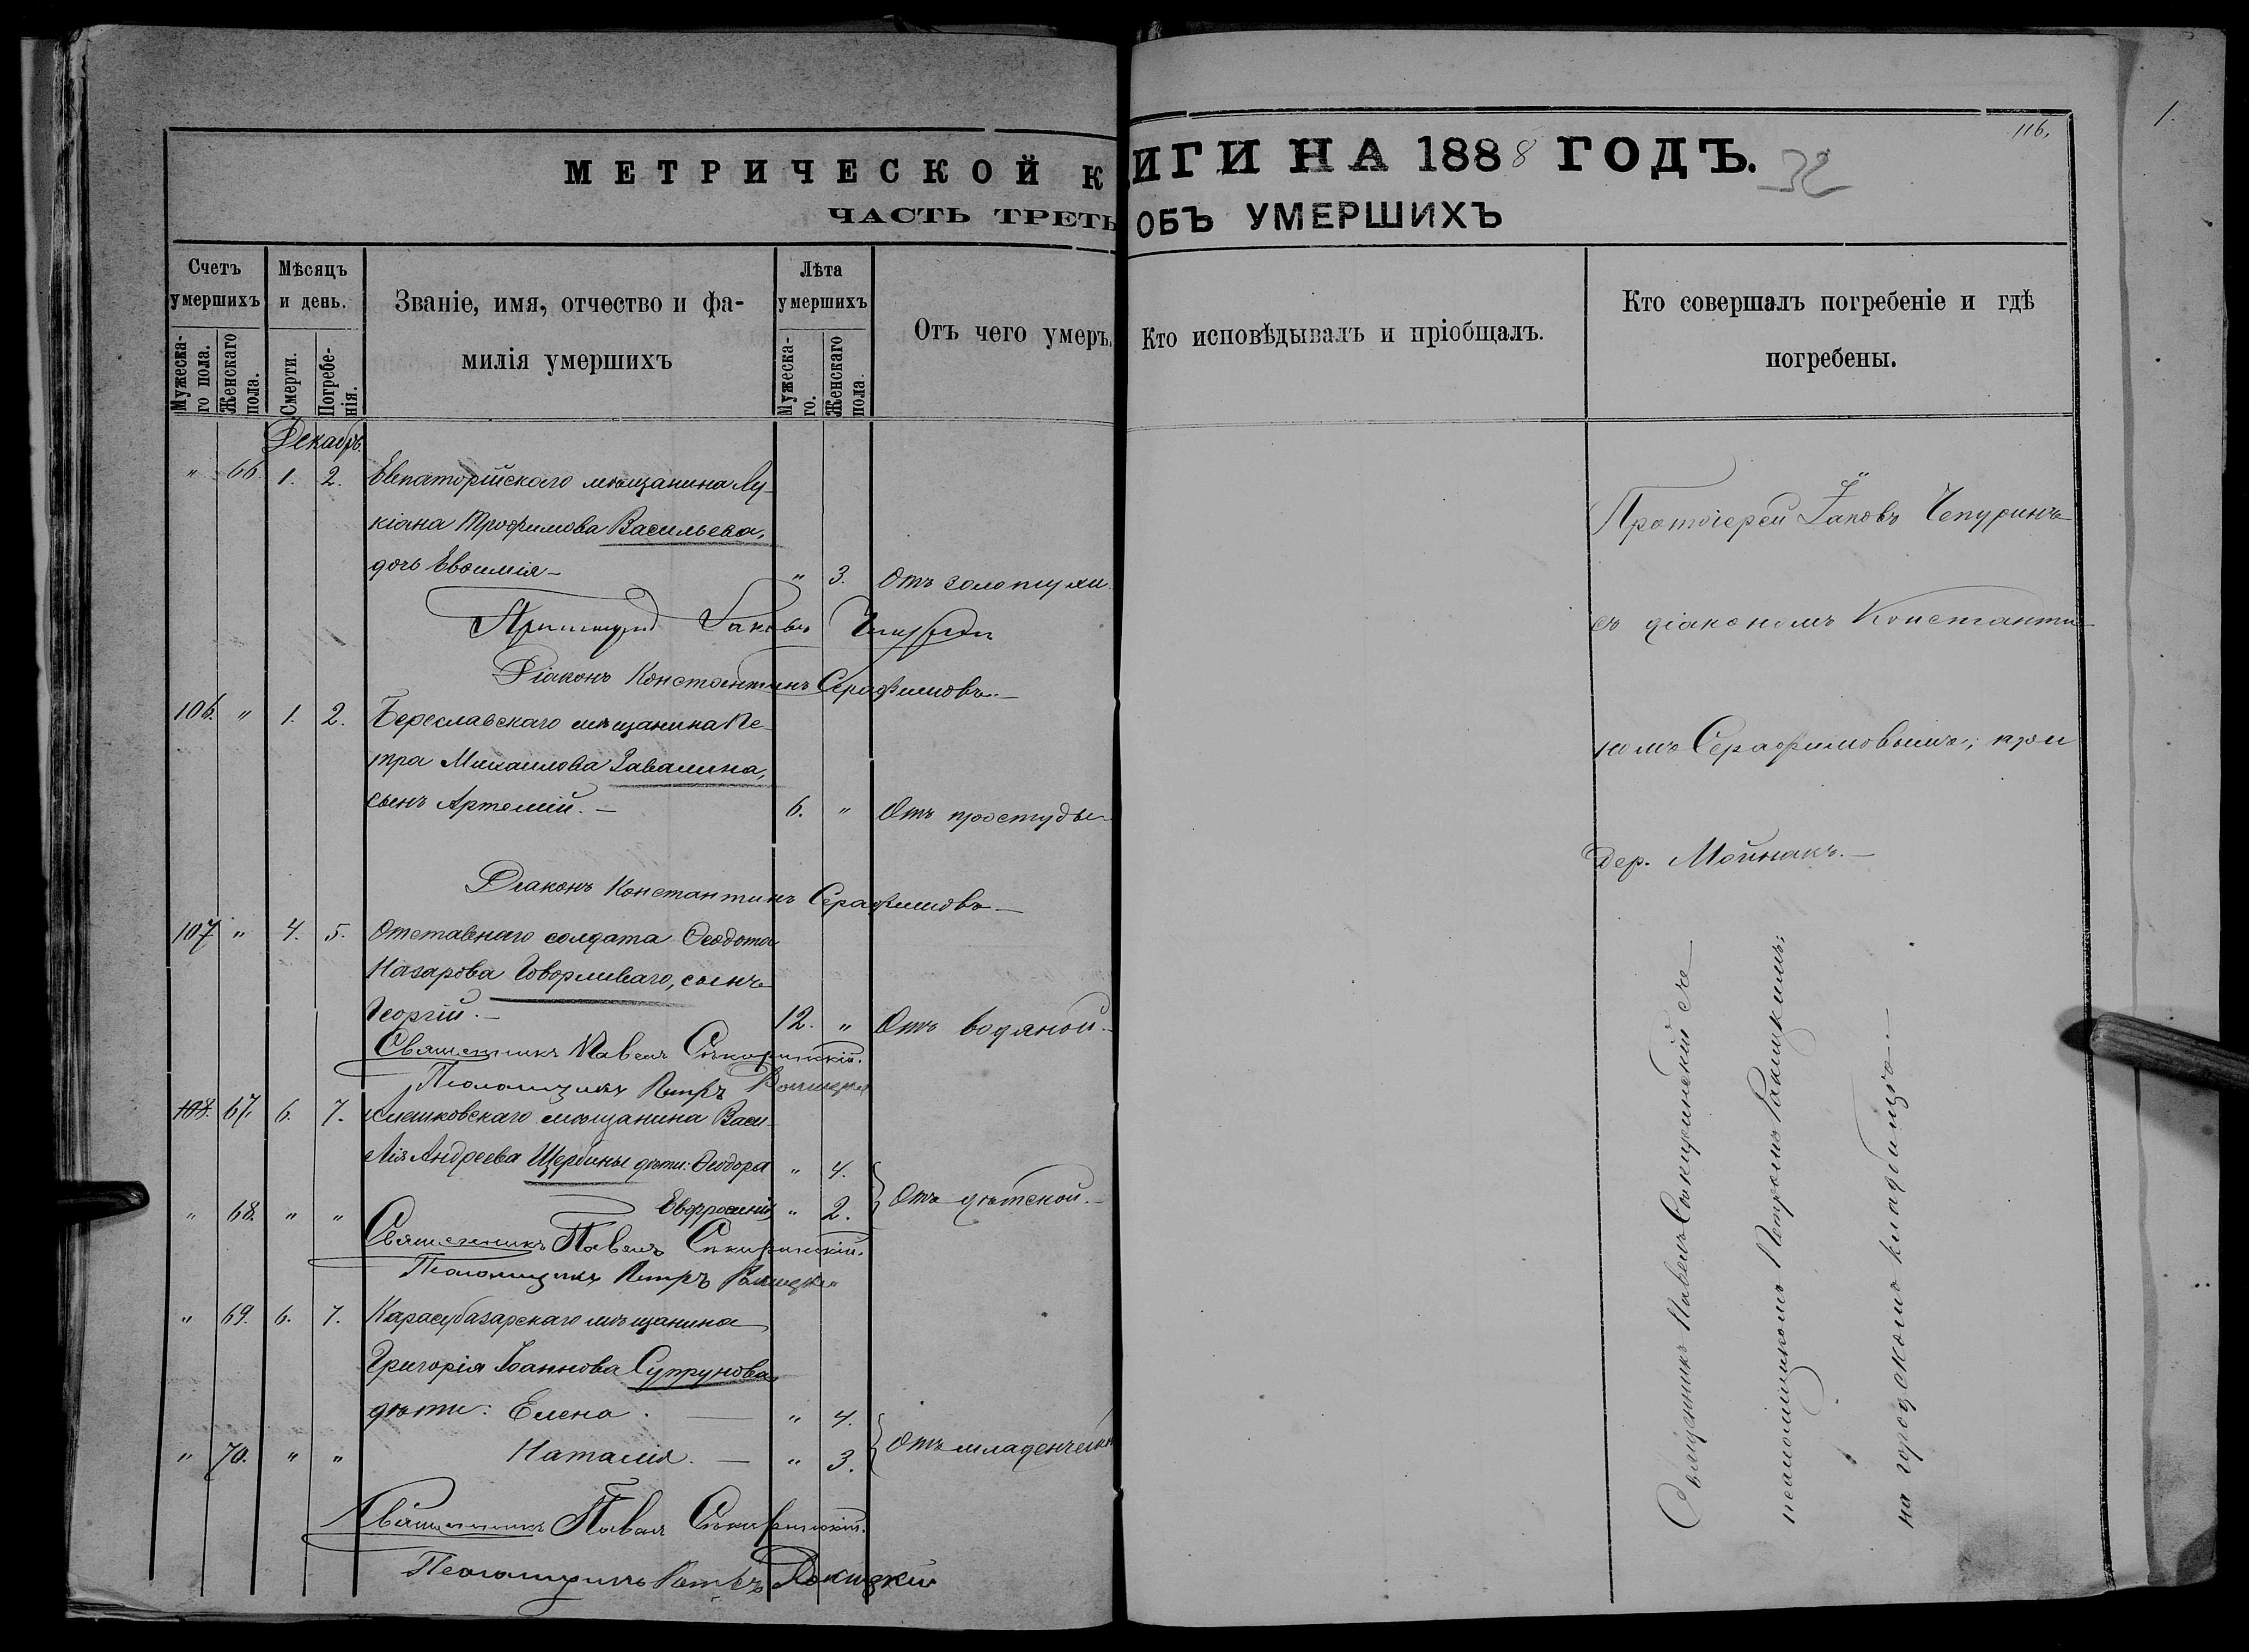 МЕТРИЧЕСКОЙ К
ИГИ НА 1888 ГОДЪ.
116.
32
1.
ЧАСТЬ ТРЕТЬ
ОБЪ УМЕРШИХЪ
Счетъ умершихъ
Мужеска-го пола.
Женскаго пола.
Мѣсяцъ и день.
Смерти.
Погребе-нія.
Званіе, имя, отчество и фа-
милія умершихъ
Лѣта умершихъ
Мужеска-го.
Женскаго пола.
Отъ чего умеръ.
Кто исповѣдывалъ и пріобщалъ.
Кто совершалъ погребеніе и гдѣ
погребены.
Декабрь
" 66. 1. 2. Евпаторійскаго мѣщанина Лу-
кіана Трофимова Васильева,
дочь Евѳимія - " 3. Отъ золотухи
Протоіерей Іаковъ Чепуринъ
Діаконъ Константинъ Серафимовъ. -
106. " 1. 2. Береславскаго мѣщанина Пе-
тра Михаилова Завалина,
сынъ Артемій. - 6. " Отъ простуды -
Діаконъ Константинъ Серафимовъ -
107 " 4. 5. Отставнаго солдата Ѳеодота
Назарова Говорливаго, сынъ
Георгій. - 12. " Отъ водяной. -
Священникъ Павелъ Сѣкиринскій.
Псаломщикъ Петръ Ракицкій
108. 67. 6. 7. Алешковскаго мѣщанина Васи-
лія Андреева Щербины дѣти: Ѳеодора " 4.
" 68. " " Евфросинія " 2. Отъ дѣтской. -
Священникъ Павелъ Сѣкиринскій.
Псаломщикъ Петръ Ракицкій
" 69. 6. 7. Карасубазарскаго мѣщанина
Григорія Іоаннова Супрунова
дѣти: Елена. - " 4.
" 70. " " Наталія. - " 3. Отъ младенческ
Священникъ Павелъ Сѣкиринскій.
Псаломщикъ Петръ Ракицкій
Протоіерей Іаковъ Чепуринъ
съ діакономъ Константи-
номъ Серафимовымъ; при
дер. Мойнакъ. -
Священникъ Павелъ Сѣкиринскій съ
псаломщикомъ Петромъ Ракицкимъ;
на городскомъ кладбищѣ. -